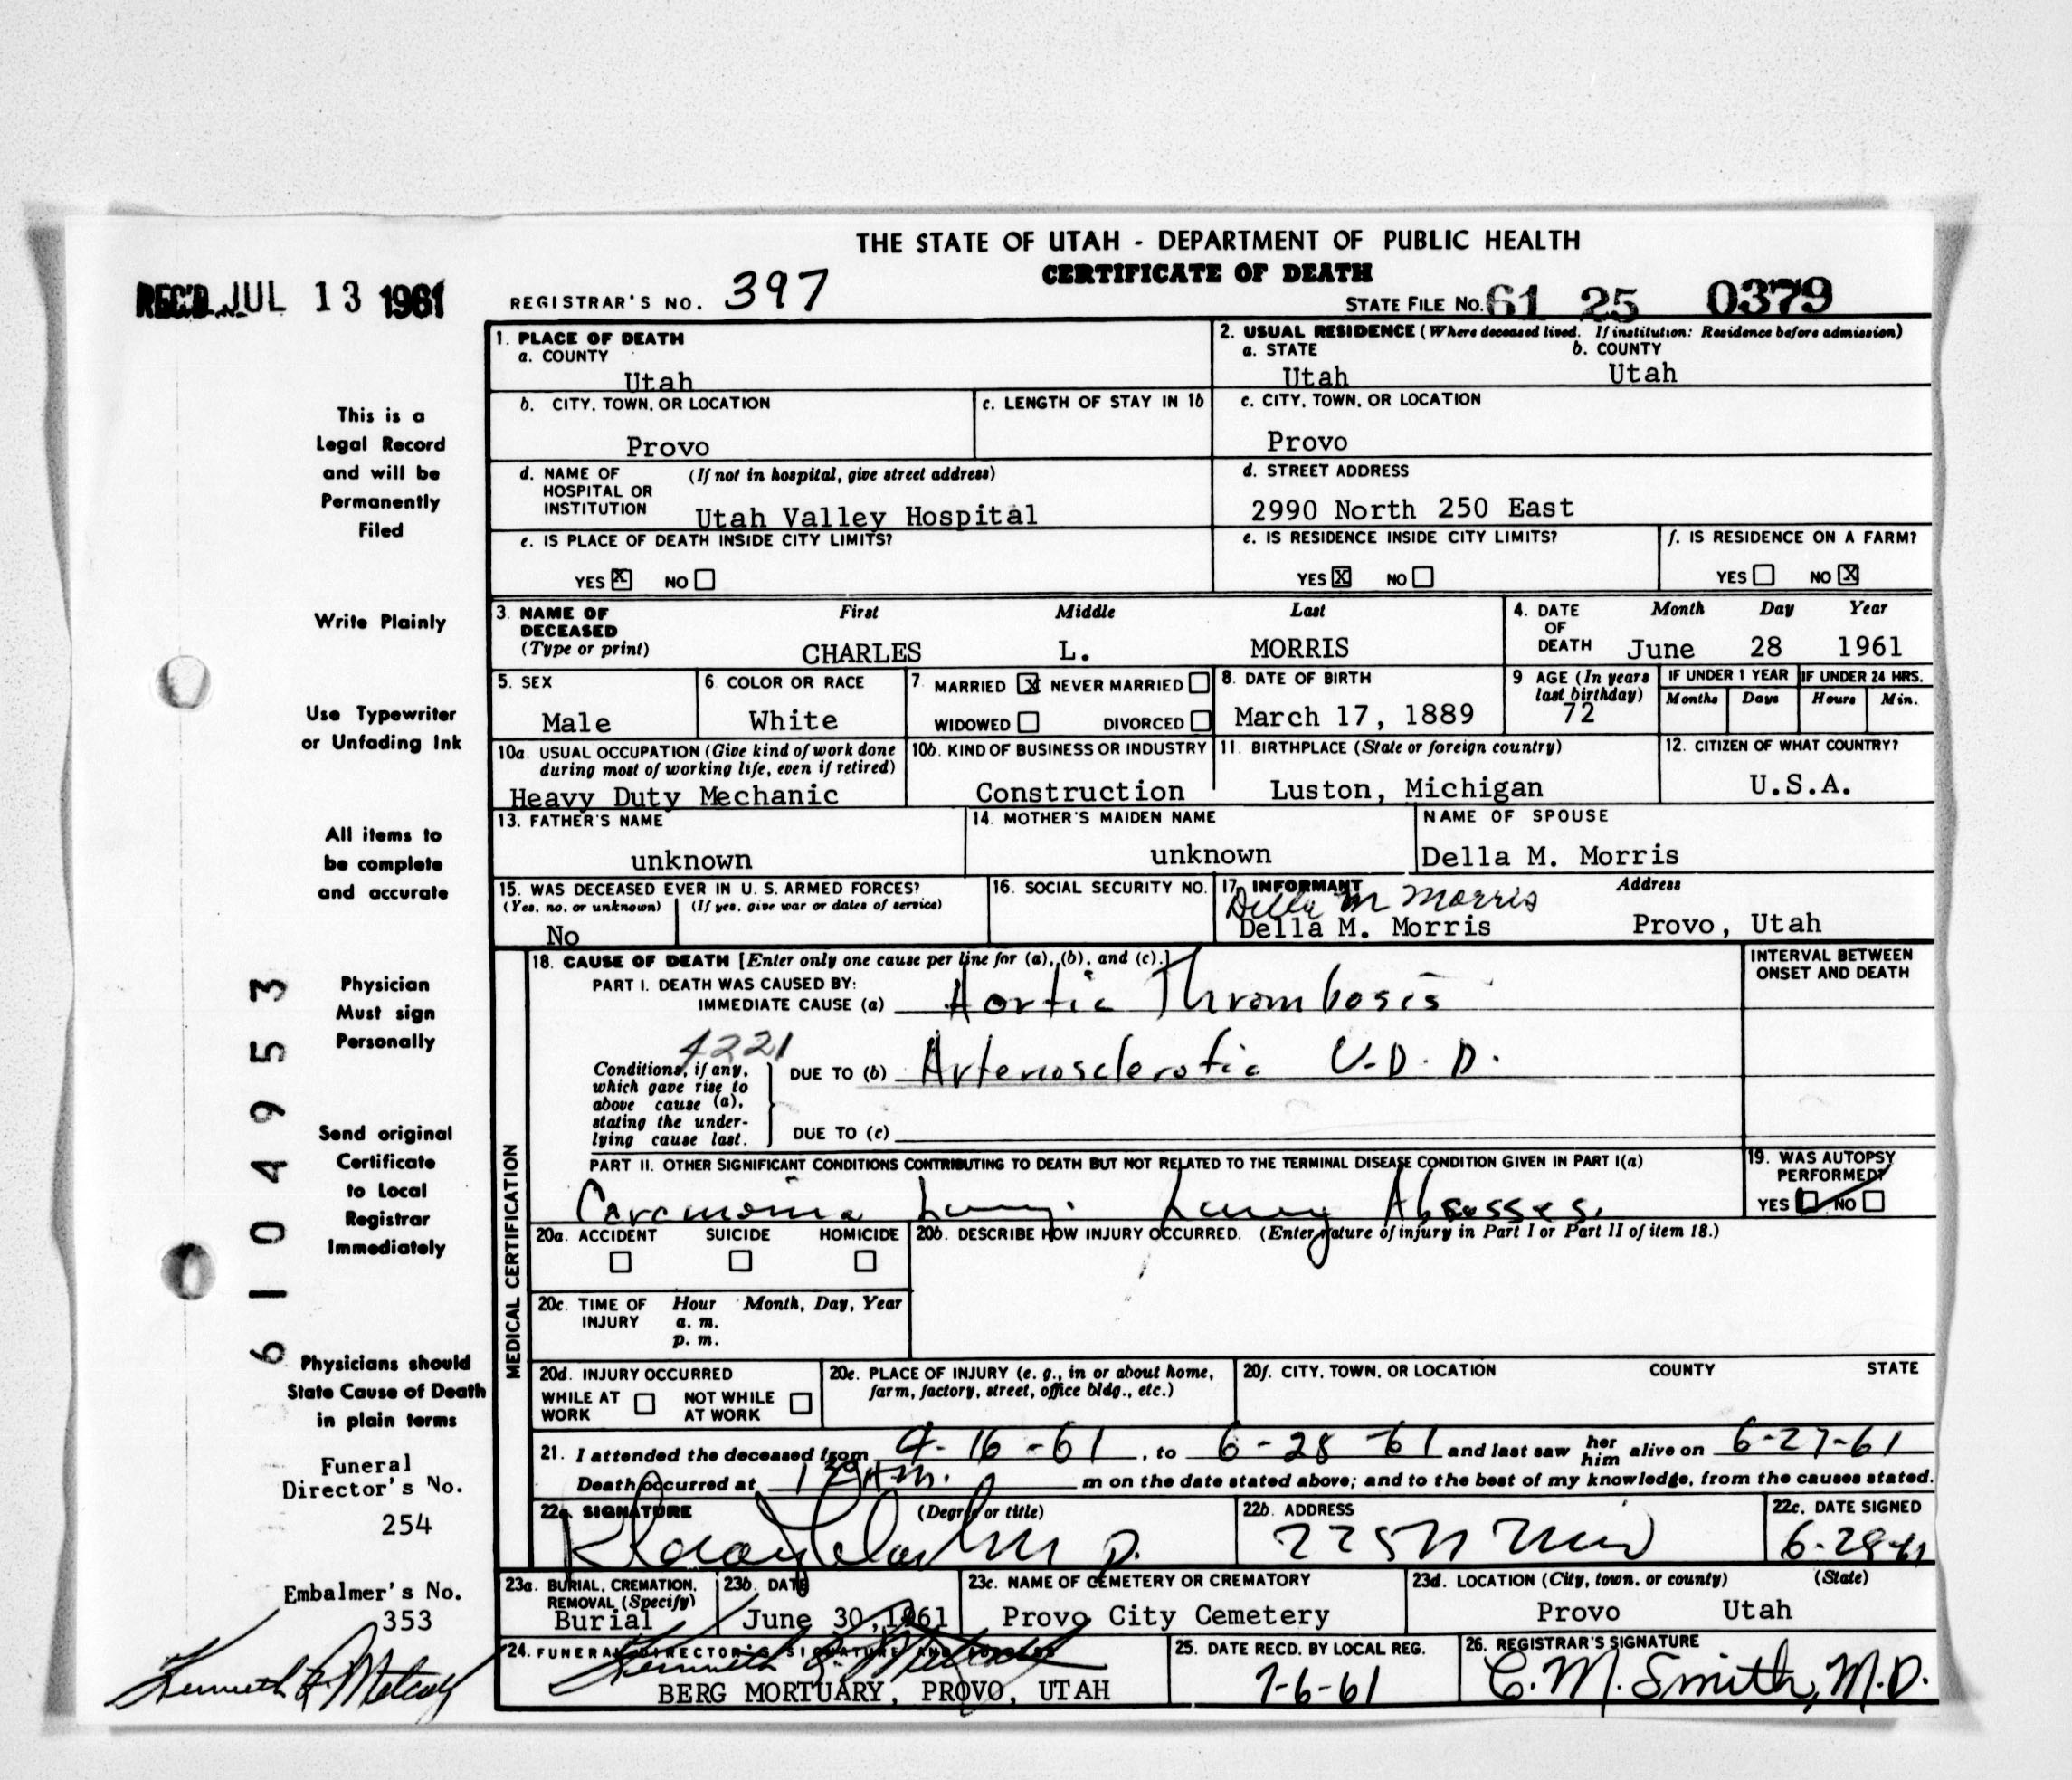 THE STATE OF UTAH - DEPARTMENT OF PUBLIC HEALTH
CERTIFICATE OF DEATH
REC'D JUL 13 1961
REGISTRAR'S NO. 397
STATE FILE NO. 61 25 0379
This is a
Legal Record
and will be
Permanently
Filed
Write Plainly
Use Typewriter
or Unfading Ink
All items to
be complete
and accurate
Physician
Must sign
Personally
Send original
Certificate
to Local
Registrar
Immediately
Physicians should
State Cause of Death
in plain terms
Funeral
Director's No.
254
Embalmer's No.
353
Kenneth
61 04953
1. PLACE OF DEATH
a. COUNTY
Utah
2. USUAL RESIDENCE (Where deceased lived. If institution: Residence before admission)
a. STATE b. COUNTY
Utah Utah
b. CITY, TOWN, OR LOCATION
Provo
c. LENGTH OF STAY IN 1b
c. CITY, TOWN, OR LOCATION
Provo
d. NAME OF (If not in hospital, give street address)
HOSPITAL OR
INSTITUTION Utah Valley Hospital
d. STREET ADDRESS
2990 North 250 East
e. IS PLACE OF DEATH INSIDE CITY LIMITS?
YES X NO
e. IS RESIDENCE INSIDE CITY LIMITS?
YES X NO
f. IS RESIDENCE ON A FARM?
YES NO X
3. NAME OF First Middle Last
DECEASED
(Type or print) CHARLES L. MORRIS
4. DATE Month Day Year
OF
DEATH June 28 1961
5. SEX
Male
6. COLOR OR RACE
White
7. MARRIED X NEVER MARRIED
WIDOWED DIVORCED
8. DATE OF BIRTH
March 17, 1889
9 AGE (In years
last birthday)
72
IF UNDER 1 YEAR IF UNDER 24 HRS.
Months Days Hours Min.
10a. USUAL OCCUPATION (Give kind of work done
during most of working life, even if retired)
Heavy Duty Mechanic
10b. KIND OF BUSINESS OR INDUSTRY
Construction
11. BIRTHPLACE (State or foreign country)
Luston, Michigan
12. CITIZEN OF WHAT COUNTRY?
U.S.A.
13. FATHER'S NAME
unknown
14. MOTHER'S MAIDEN NAME
unknown
NAME OF SPOUSE
Della M. Morris
15. WAS DECEASED EVER IN U. S. ARMED FORCES?
(Yes, no, or unknown) (If yes, give war or dates of service)
No
16. SOCIAL SECURITY NO.
17. INFORMANT Address
Della M Morris
Della M. Morris Provo, Utah
MEDICAL CERTIFICATION
18. CAUSE OF DEATH [Enter only one cause per line for (a), (b), and (c).]
INTERVAL BETWEEN
ONSET AND DEATH
PART I. DEATH WAS CAUSED BY:
IMMEDIATE CAUSE (a) Aortic Thrombosis
4221
Conditions, if any,
which gave rise to
above cause (a),
stating the under-
lying cause last.
DUE TO (b) Arteriosclerotic D.
DUE TO (c)
PART II. OTHER SIGNIFICANT CONDITIONS CONTRIBUTING TO DEATH BUT NOT RELATED TO THE TERMINAL DISEASE CONDITION GIVEN IN PART I(a)
Carcinoma Lung. Lung Abscesses.
19. WAS AUTOPSY
PERFORMED?
YES NO
20a. ACCIDENT SUICIDE HOMICIDE
20b. DESCRIBE HOW INJURY OCCURRED. (Enter nature of injury in Part I or Part II of item 18.)
20c. TIME OF Hour Month, Day, Year
INJURY a. m.
p. m.
20d. INJURY OCCURRED
WHILE AT WORK NOT WHILE AT WORK
20e. PLACE OF INJURY (e. g., in or about home,
farm, factory, street, office bldg., etc.)
20f. CITY, TOWN, OR LOCATION COUNTY STATE
21. I attended the deceased from 4-16-61, to 6-28-61 and last saw her him alive on 6-27-61
Death occurred at m on the date stated above; and to the best of my knowledge, from the causes stated.
22a. SIGNATURE (Degree or title)
M D.
22b. ADDRESS
22c. DATE SIGNED
23a. BURIAL, CREMATION,
REMOVAL (Specify)
Burial
23b. DATE
June 30, 1961
23c. NAME OF CEMETERY OR CREMATORY
Provo City Cemetery
23d. LOCATION (City, town, or county) (State)
Provo Utah
24. FUNERAL DIRECTOR'S SIGNATURE AND ADDRESS
Kenneth
BERG MORTUARY, PROVO, UTAH
25. DATE RECD. BY LOCAL REG.
7-6-61
26. REGISTRAR'S SIGNATURE
C. M. Smith, M.D.